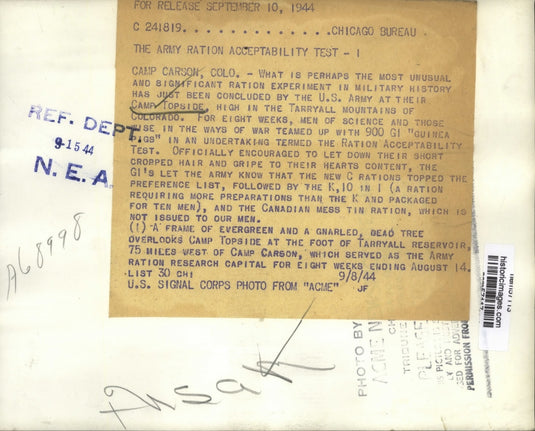 FOR RELEASE SEPTEMBER 10, 1944
C 241819. . . . . . . . . . . . . . .CHICAGO BUREAU .
THE ARMY RATION ACCEPTABILITY TEST - I
CAMP CARSON, COLO. - WHAT IS PERHAPS THE MOST UNUSUAL
AND SIGNIFICANT RATION EXPERIMENT IN MILITARY HISTORY
HAS JUST BEEN CONCLUDED BY THE U.S. ARMY AT THEIR
CAMP TOPSIDE, HIGH IN THE TARRYALL MOUNTAINS OF
COLORADO. FOR EIGHT WEEKS, MEN OF SCIENCE AND THOSE
WISE IN THE WAYS OF WAR TEAMED UP WITH 900 GI "GUINEA
PIGS" IN AN UNDERTAKING TERMED THE RATION ACCEPTABILITY
TEST. OFFICIALLY ENCOURAGED TO LET DOWN THEIR SHORT
CROPPED HAIR AND GRIPE TO THEIR HEARTS CONTENT, THE
GI'S LET THE ARMY KNOW THAT THE NEW C RATIONS TOPPED THE
PREFERENCE LIST, FOLLOWED BY THE K,10 IN 1 (A RATION
REQUIRING MORE PREPARATIONS THAN THE K AND PACKAGED
FOR TEN MEN), AND THE CANADIAN MESS TIN RATION, WHICH IS
NOT ISSUED TO OUR MEN.
(1) 'A' FRAME OF EVERGREEN AND A GNARLED, DEAD TREE
OVERLOOKS CAMP TOPSIDE AT THE FOOT OF TARRYALL RESERVOIR,
75 MILES WEST OF CAMP CARSON, WHICH SERVED AS THE ARMY
RATION RESEARCH CAPITAL FOR EIGHT WEEKS ENDING AUGUST 14.
LIST 30 CHI 9/8/44
U.S. SIGNAL CORPS PHOTO FROM "ACME" JF
REF. DEPT.
9-15 44
N.E.A.
A68998
historicimages.com
PHOTO BY
ACME N
TRIBUNE
PLEASE
PERMISSION FROM